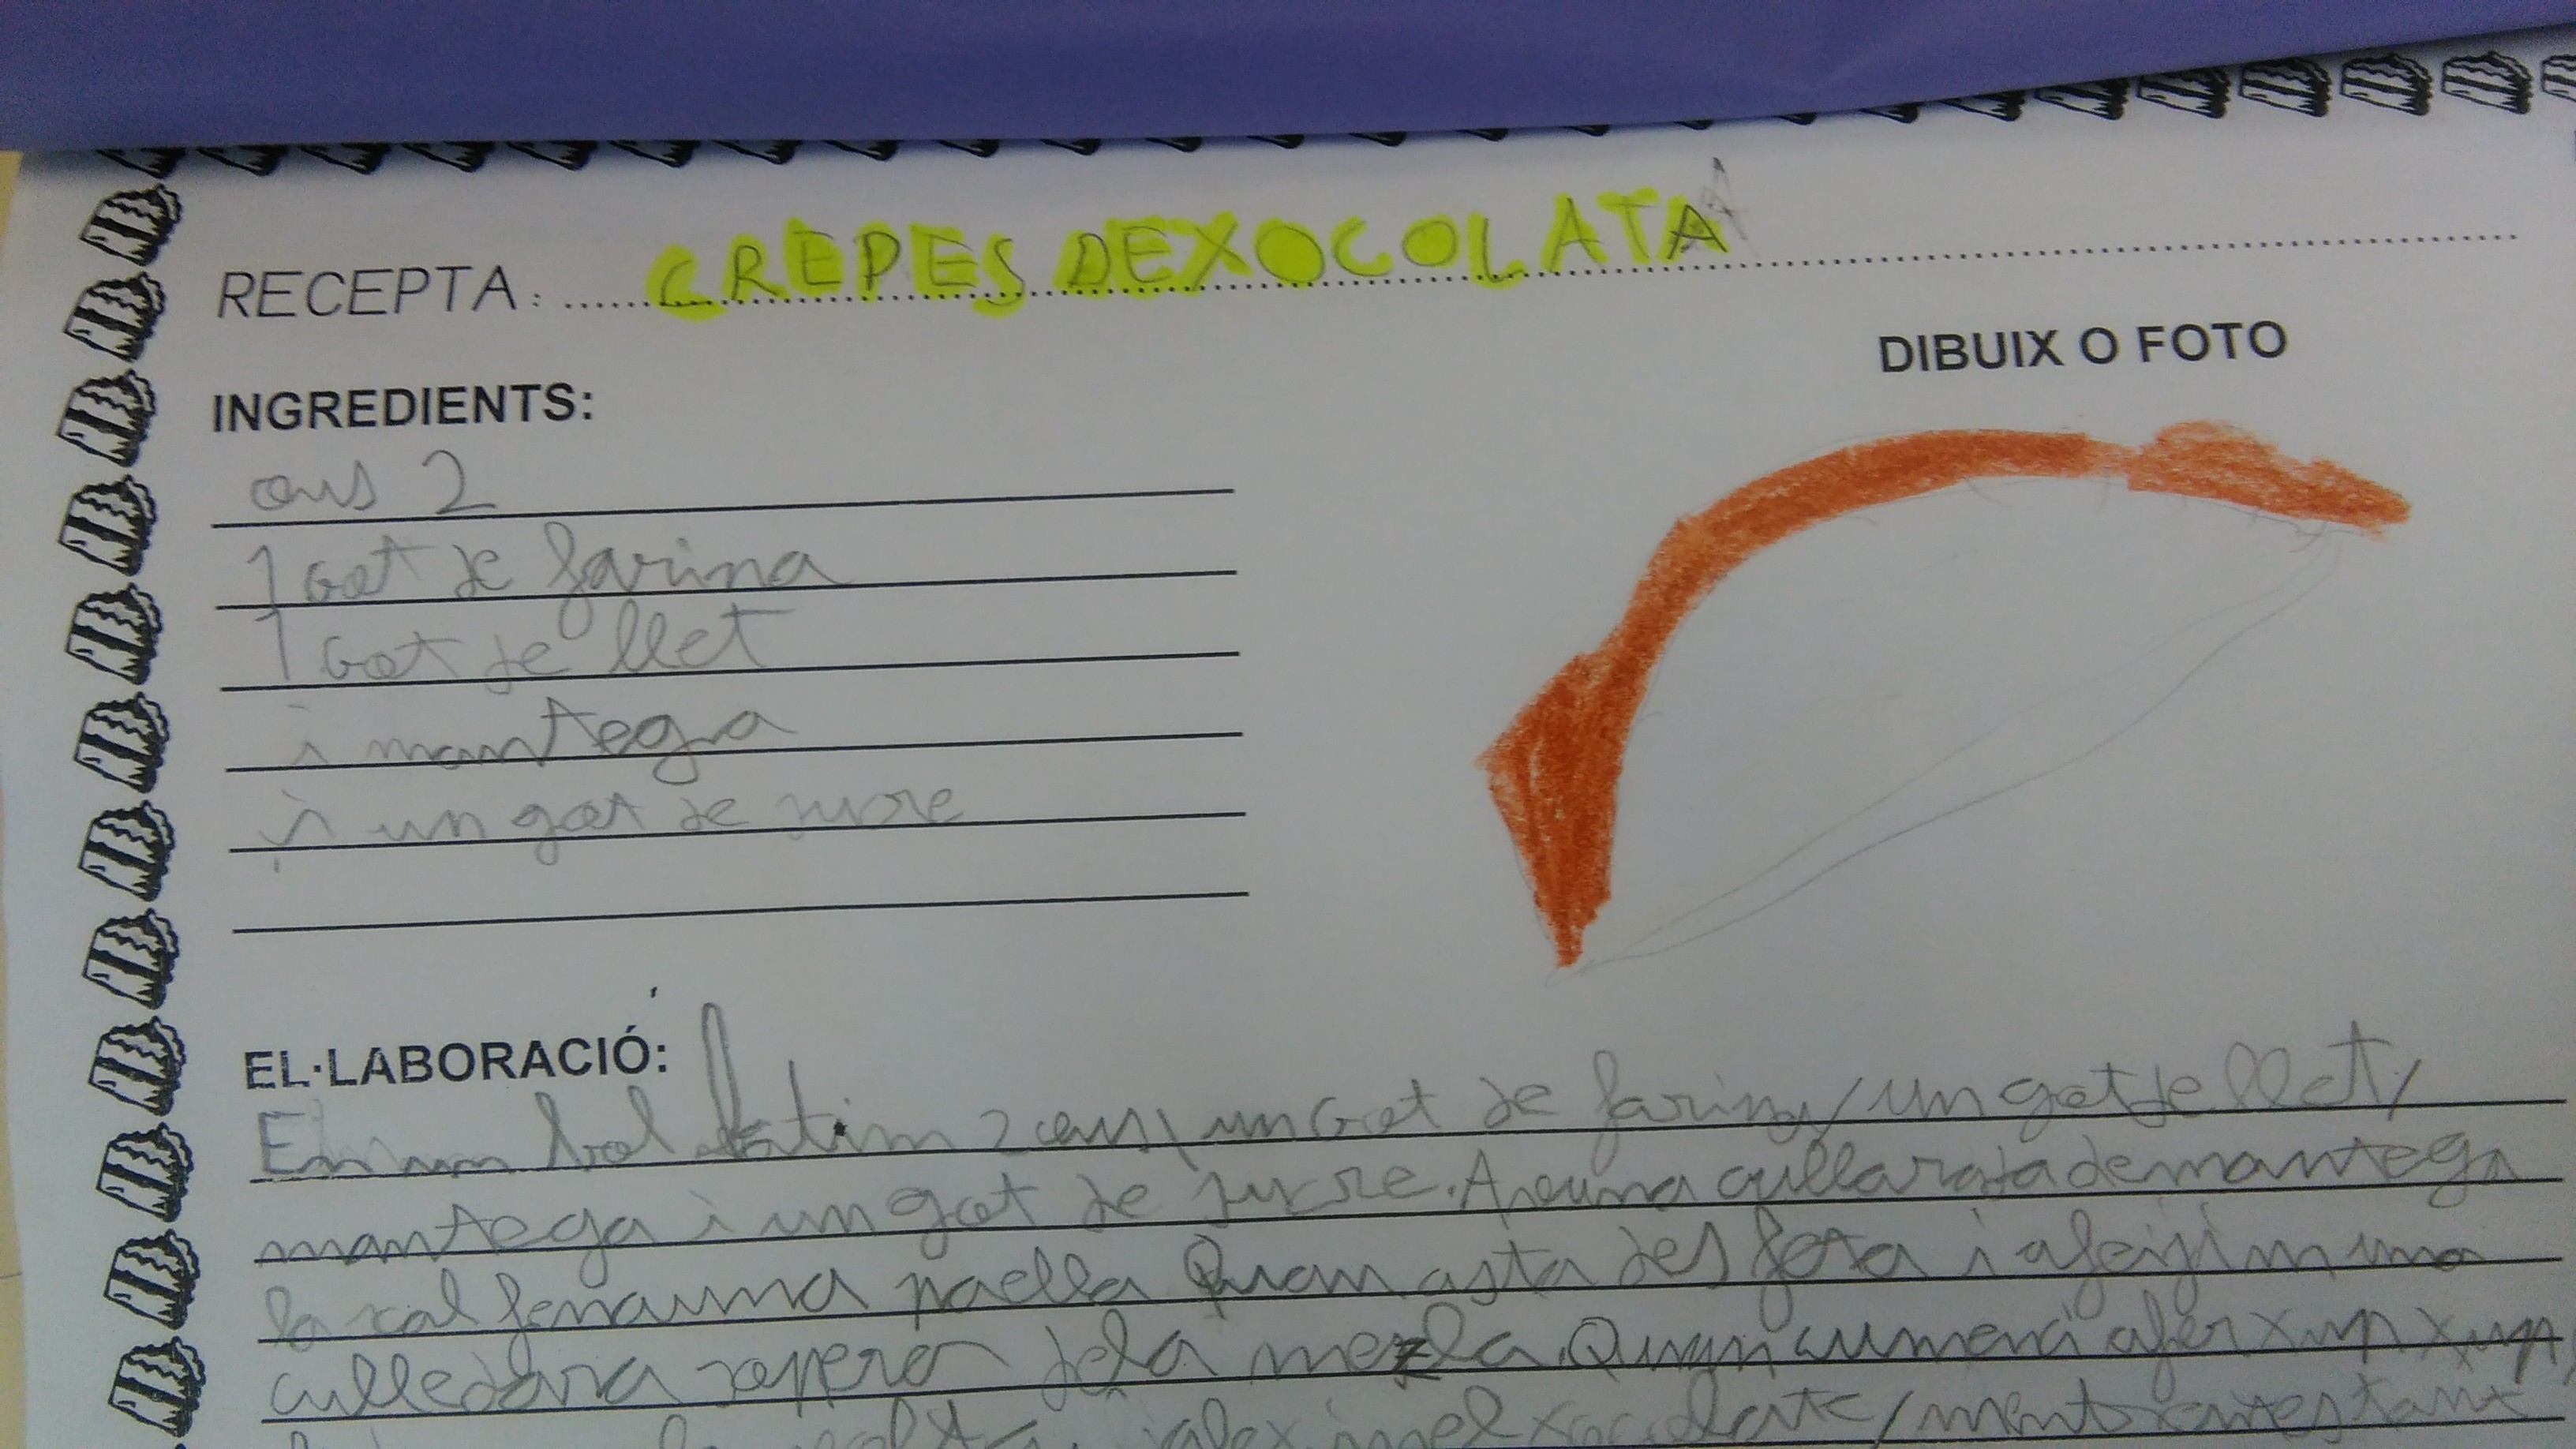 RECEPTA: CREPES DEXOCOLATA
DIBUIX O FOTO
INGREDIENTS:
ous 2
1 Got de farina
1 Got de llet
i mantega
i un got de sucre
EL·LABORACIÓ:
En un bol batim 2 ous, un Got de farina, un got de llet,
mantega i un got de sucre. A una cullarada de mantega
la cal fen a una paella Quan asta des fosa i afeijim una
culledara sopera dela mezla. Quan cumenci afer xup xup,
el xocolate, mentr